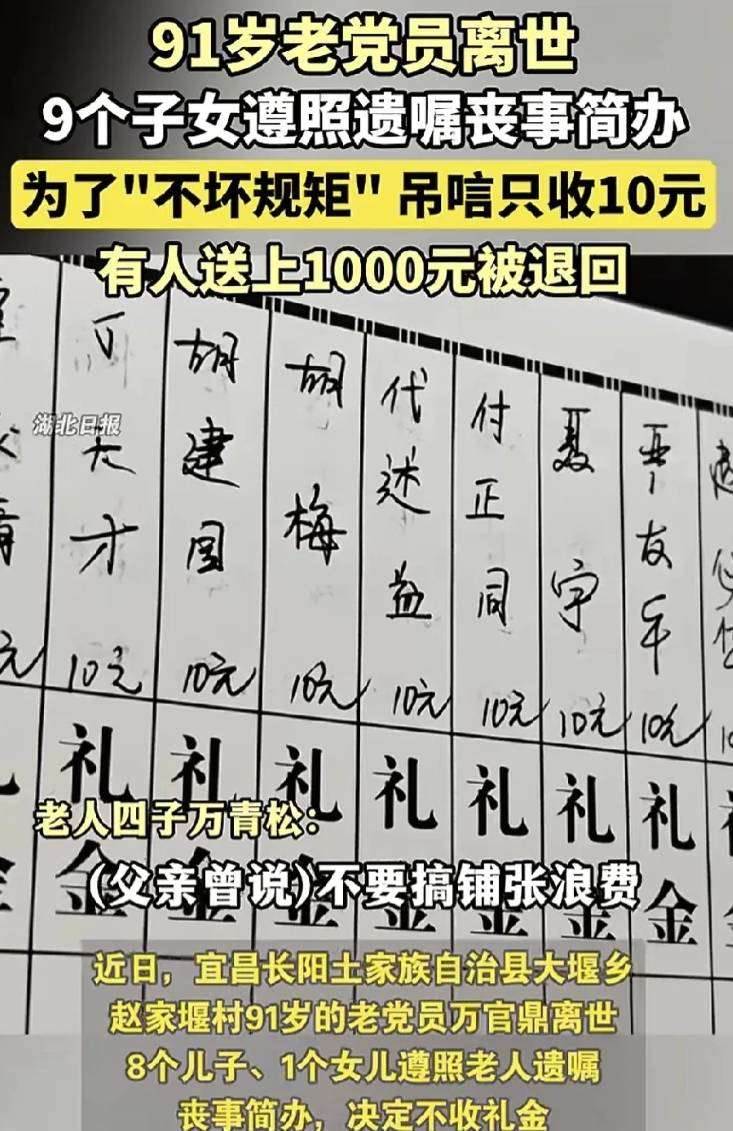 91岁老党员离世
9个子女遵照遗嘱丧事简办
为了"不坏规矩" 吊唁只收10元
有人送上1000元被退回
湖北日报
友年 10元 礼金
聂宇 10元 礼金
付正同 10元 礼金
代述益 10元 礼金
胡梅 10元 礼金
胡建国 10元 礼金
大才 10元 礼金
老人四子万青松：
(父亲曾说)不要搞铺张浪费
近日，宜昌长阳土家族自治县大堰乡
赵家堰村91岁的老党员万官鼎离世
8个儿子、1个女儿遵照老人遗嘱
丧事简办，决定不收礼金